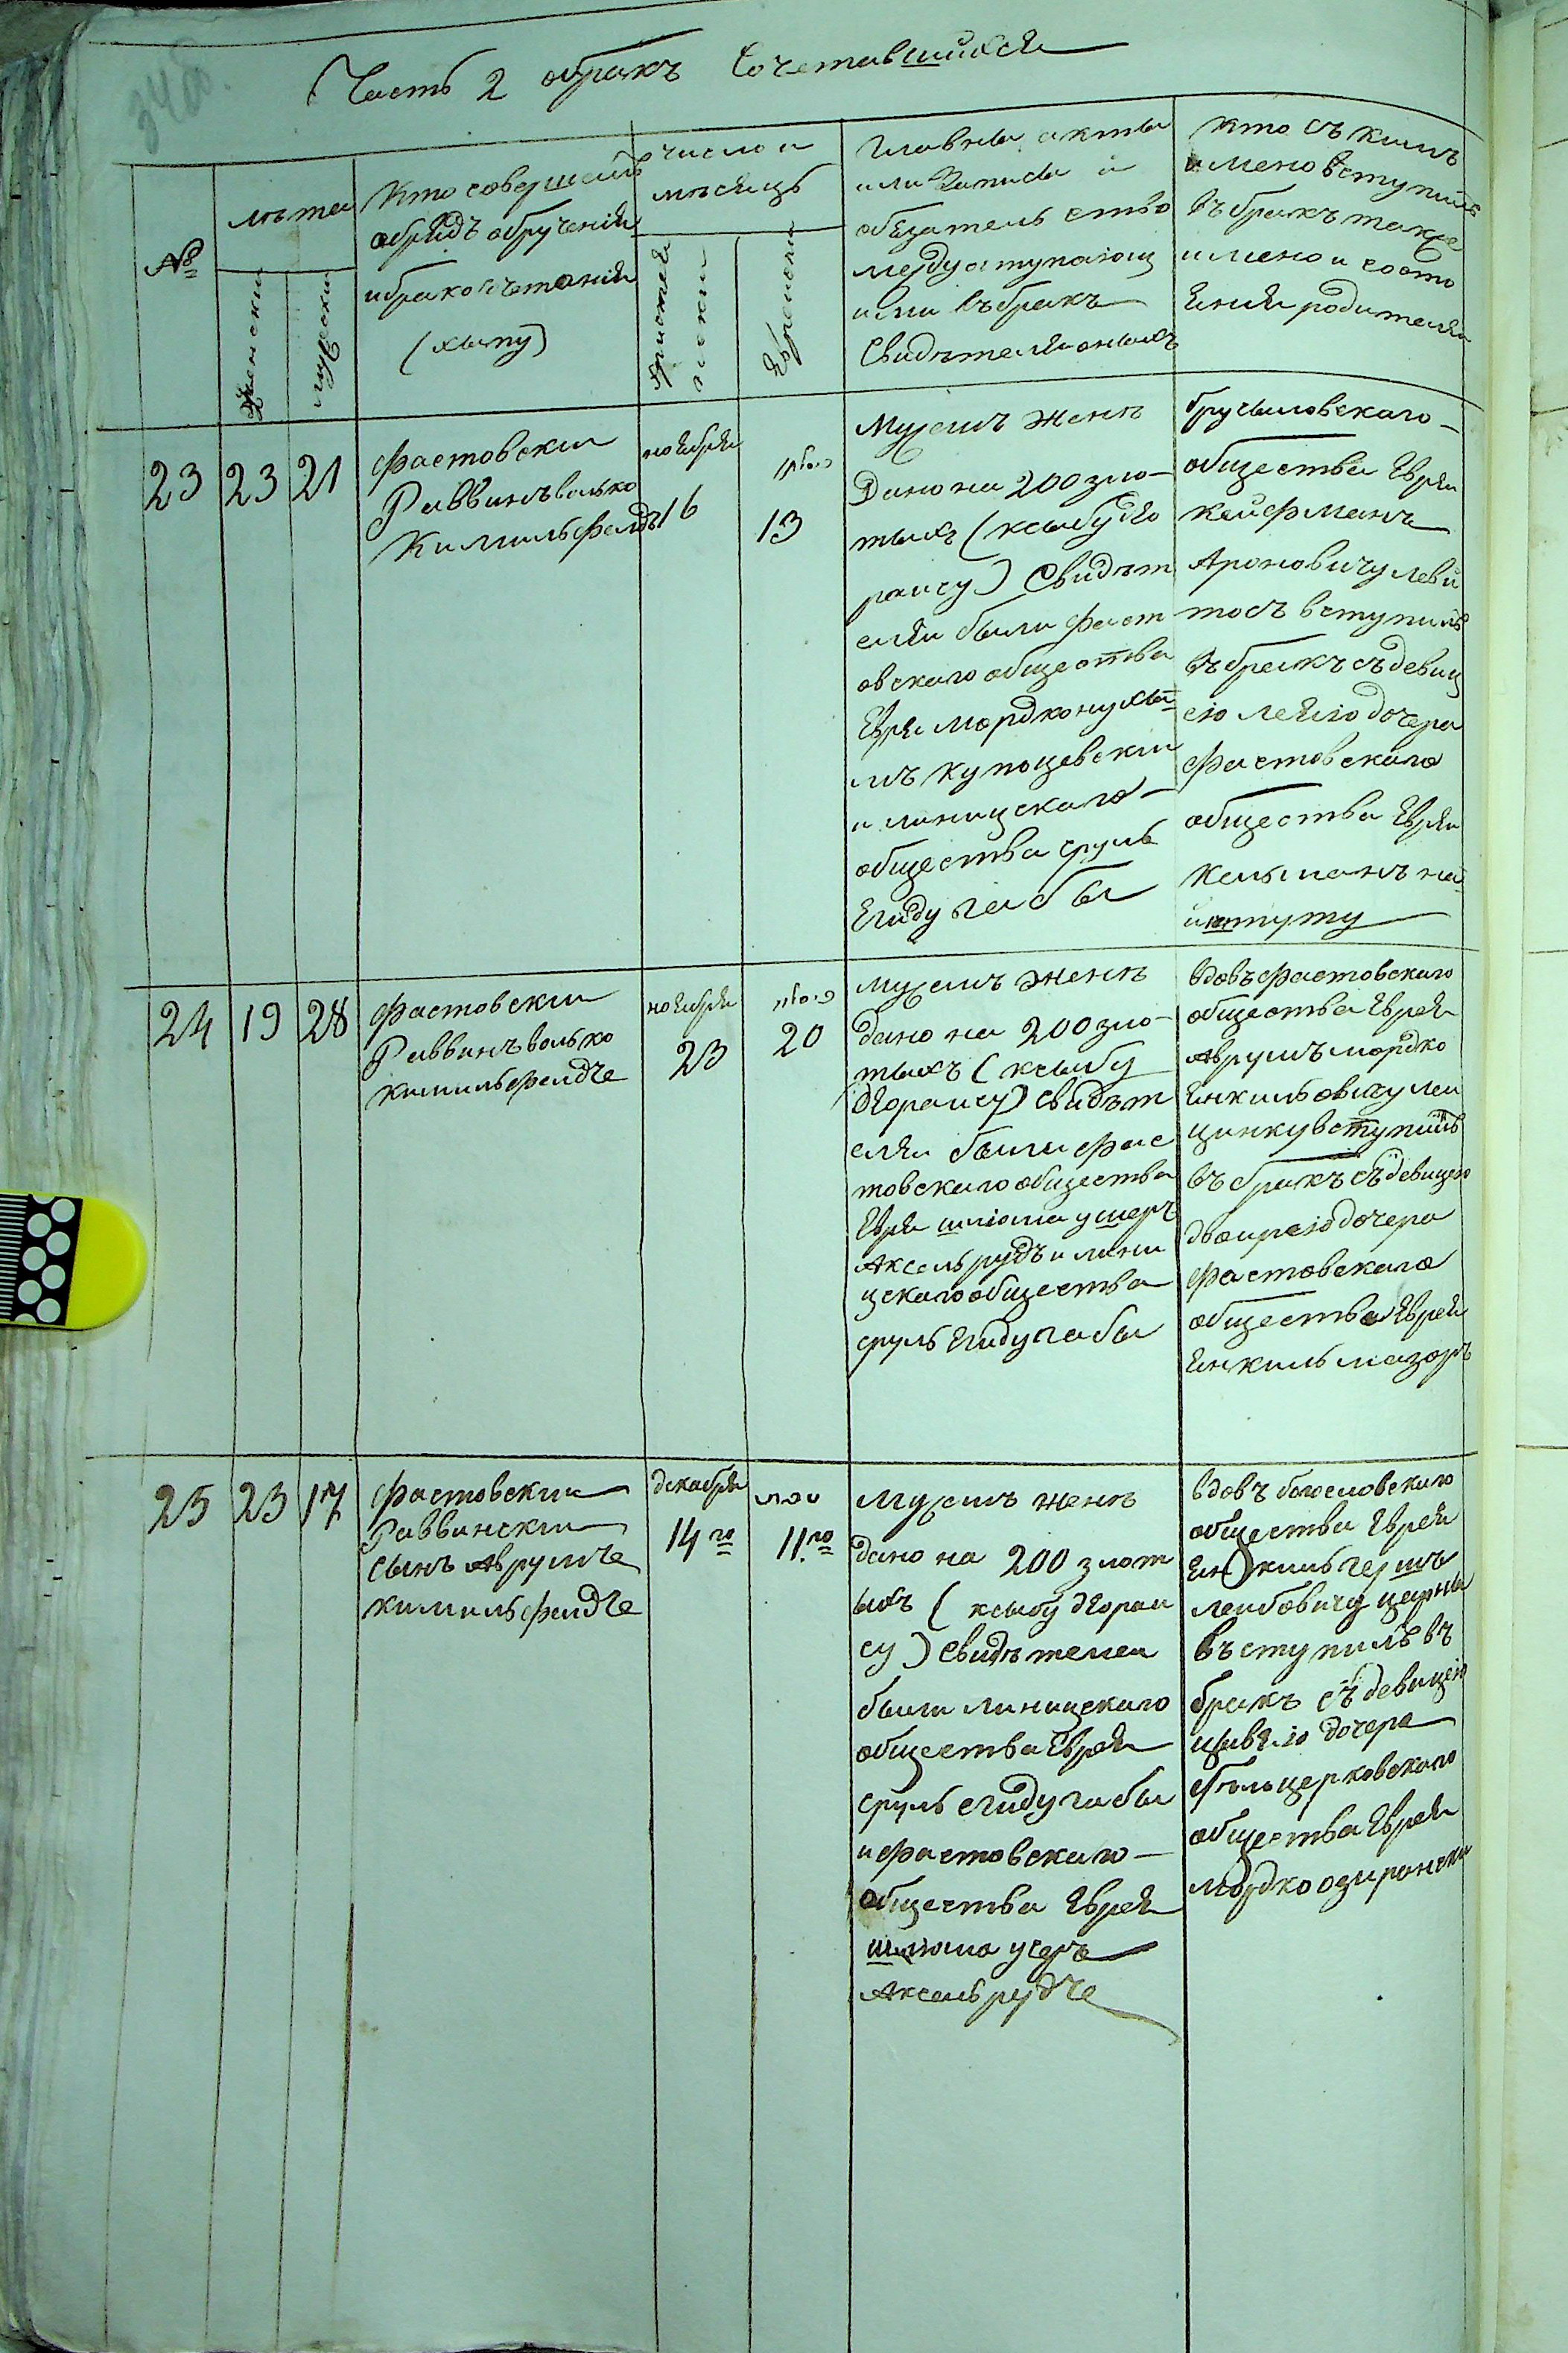 Часть 2 обракъ Сочетавшийхся
№
лѣта
женски
мужески
Кто совершалъ
обрядъ обручения
ибракочетания
(хыпу)
число и
мѣсяцъ
христия
нски
Еврейски
Главны акты
или Записи и
обязательство
между вступающ
ими въбракъ
Свидѣтели оныхъ
Кто съ кимъ
имено вступилъ
въбракъ также
имено и состо
яния родителя
23
23
21
Фастовски
Раввинъ волько
Кимильфелдъ
ноября
16
כסלו
13
Мужемъ Женѣ
Дано на 200 зло-
тыхъ (ксыбу део
раису) Свидѣт
ели были фаст
овскаго общества
Евреи Мордко нухы-
мъ Купощевски
и линицскаго-
общества сруль
Егидугабы
брусиловскаго-
общества Еврея
Кейфманъ
Ароновичу леви
тосъ вступилъ
въбракъ съдевиц
ею леяю дочера
Фастовскаго
общества Еврея
Кельманъ на-
24
19
28
Фастовски
Раввинъ волько
кимильфелдъе
ноября
23
כסלו
20
Мужемъ Женѣ
дано на 200 зло-
тыхъ (ксыбу
деораису) свидѣт
ели были фас
товскаго общества
Евреи шлиома ушеръ
Аксельрудъ и лини
цскаго общества
сруль Егидугабы
вдовъ фастовскаго
общества Еврея
Аврумъ мордко
Енкильовичу леи
цинку вступилъ
въбракъ съдевицею
двоирею дочера
Фастовскаго
общества Еврея
Енкиль мазоръ
25
23
17
Фастовски
Раввински
сынъ Аврумъе
кимильфелдъе
декабря
14го
טבת
11.го
Мужемъ женѣ
дано на 200 злот
ыхъ (ксыбу деораи
су) Свидѣтели
были линицскаго
общества Евреи
сруль егидугабы
и фастовскаго-
общества Еврея
шлиома ушеръ
Аксельрудъе
вдовъ богословскаго
общества Еврея
Енкиль гершъ
Лейбовичу черны
въступилъ въ
бракъ съ девицею
цывяю дочера
бѣльцерковскаго
общества Еврея
мордко озирански